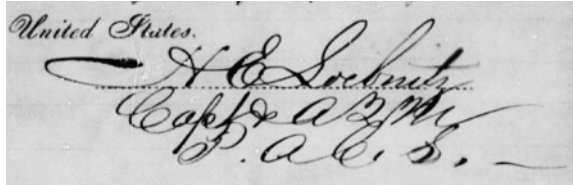 United States.
H E Loebnitz
Capt & A Q M
P. A C. S.